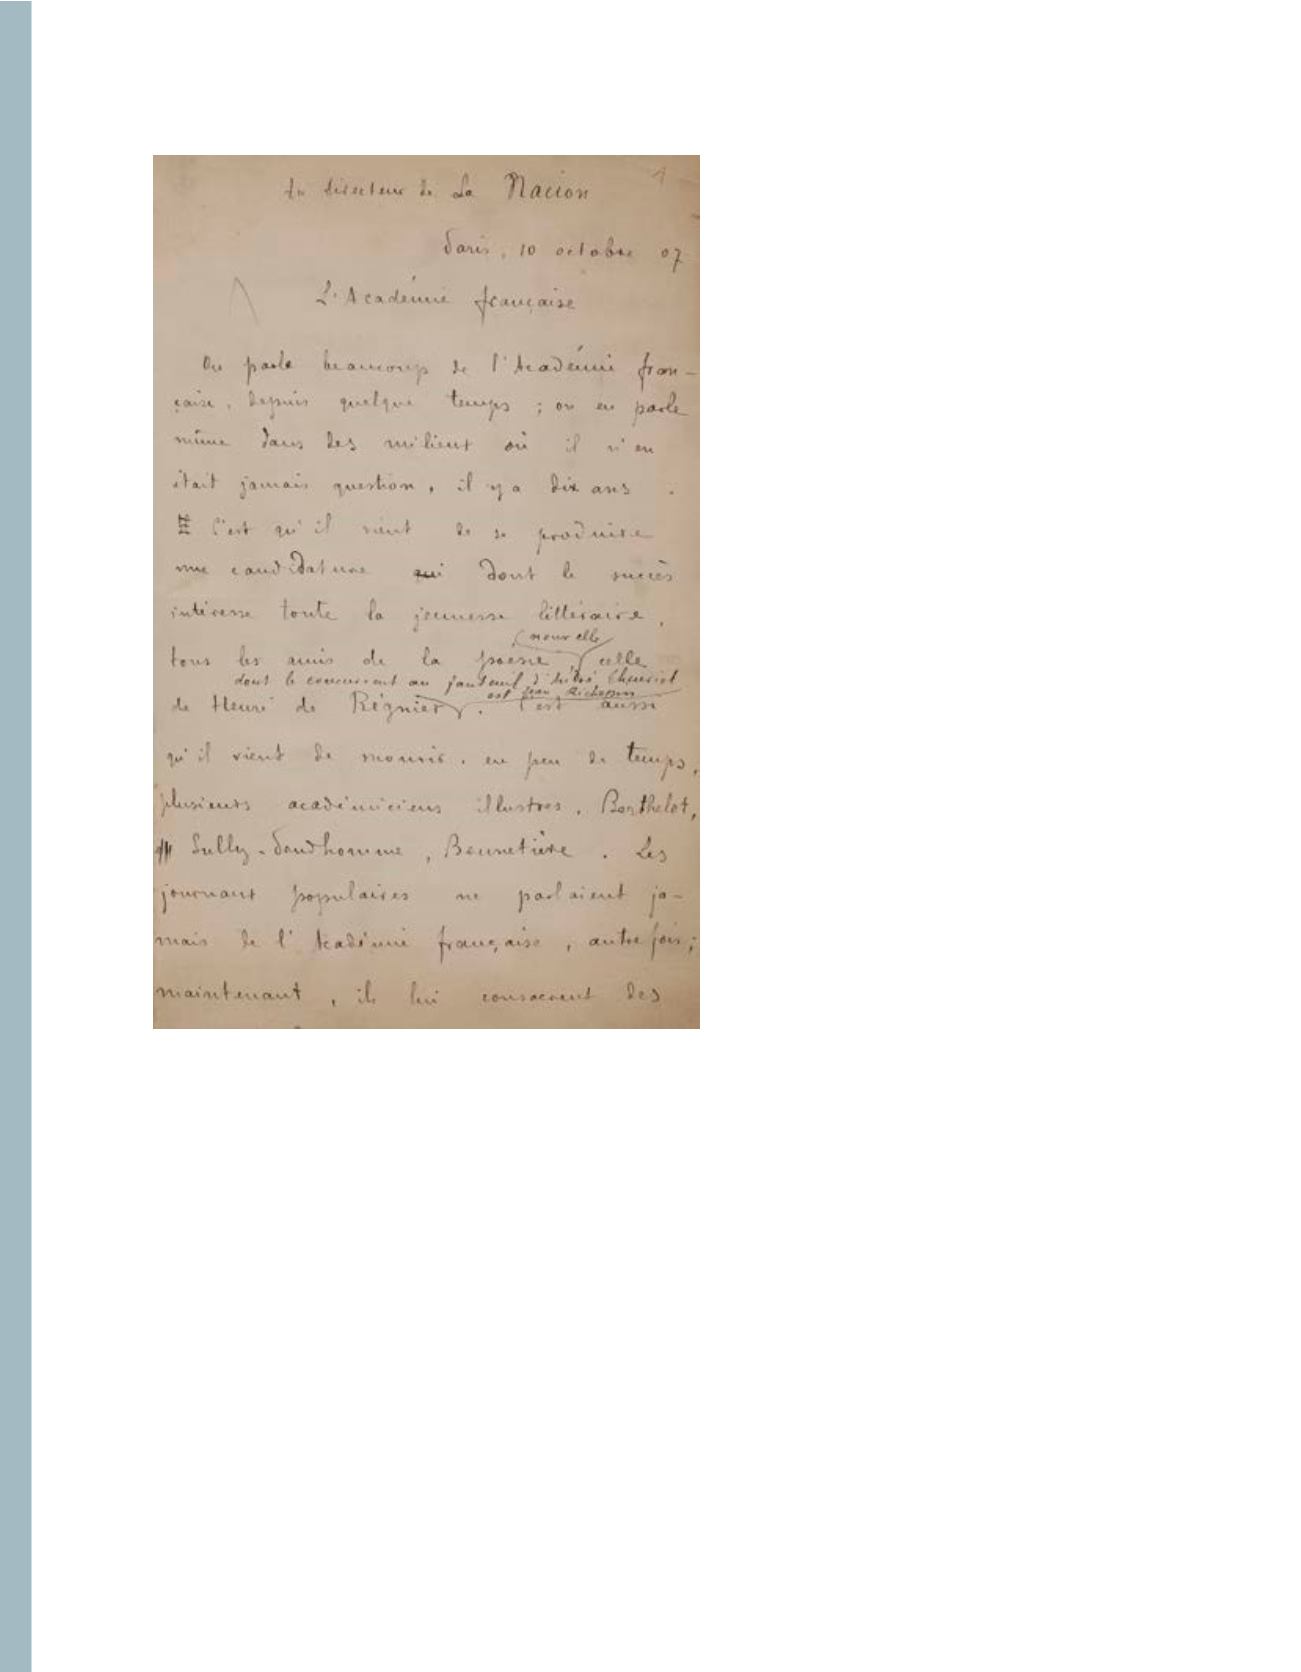 1
Au directeur de La Nacion
Paris, 10 octobre 07
L'Académie française
On parle beaucoup de l'Académie fran-
çaise, depuis quelque temps ; on en parle
même dans des milieux où il n'en
était jamais question, il y a dix ans.
C'est qu'il vient de se produire
une candidature qui dont le succès
intéresse toute la jeunesse littéraire,
nouvelle
tous les amis de la poésie, celle
dont le concurrent au fauteuil d'André Theuriet
est Jean Richepin
de Henri de Régnier. C'est aussi
qu'il vient de mourir, en peu de temps,
plusieurs académiciens illustres, Berthelot,
Sully-Prudhomme, Brunetière. Les
journaux populaires ne parlaient ja-
mais de l'Académie française, autrefois ;
maintenant, ils lui consacrent des